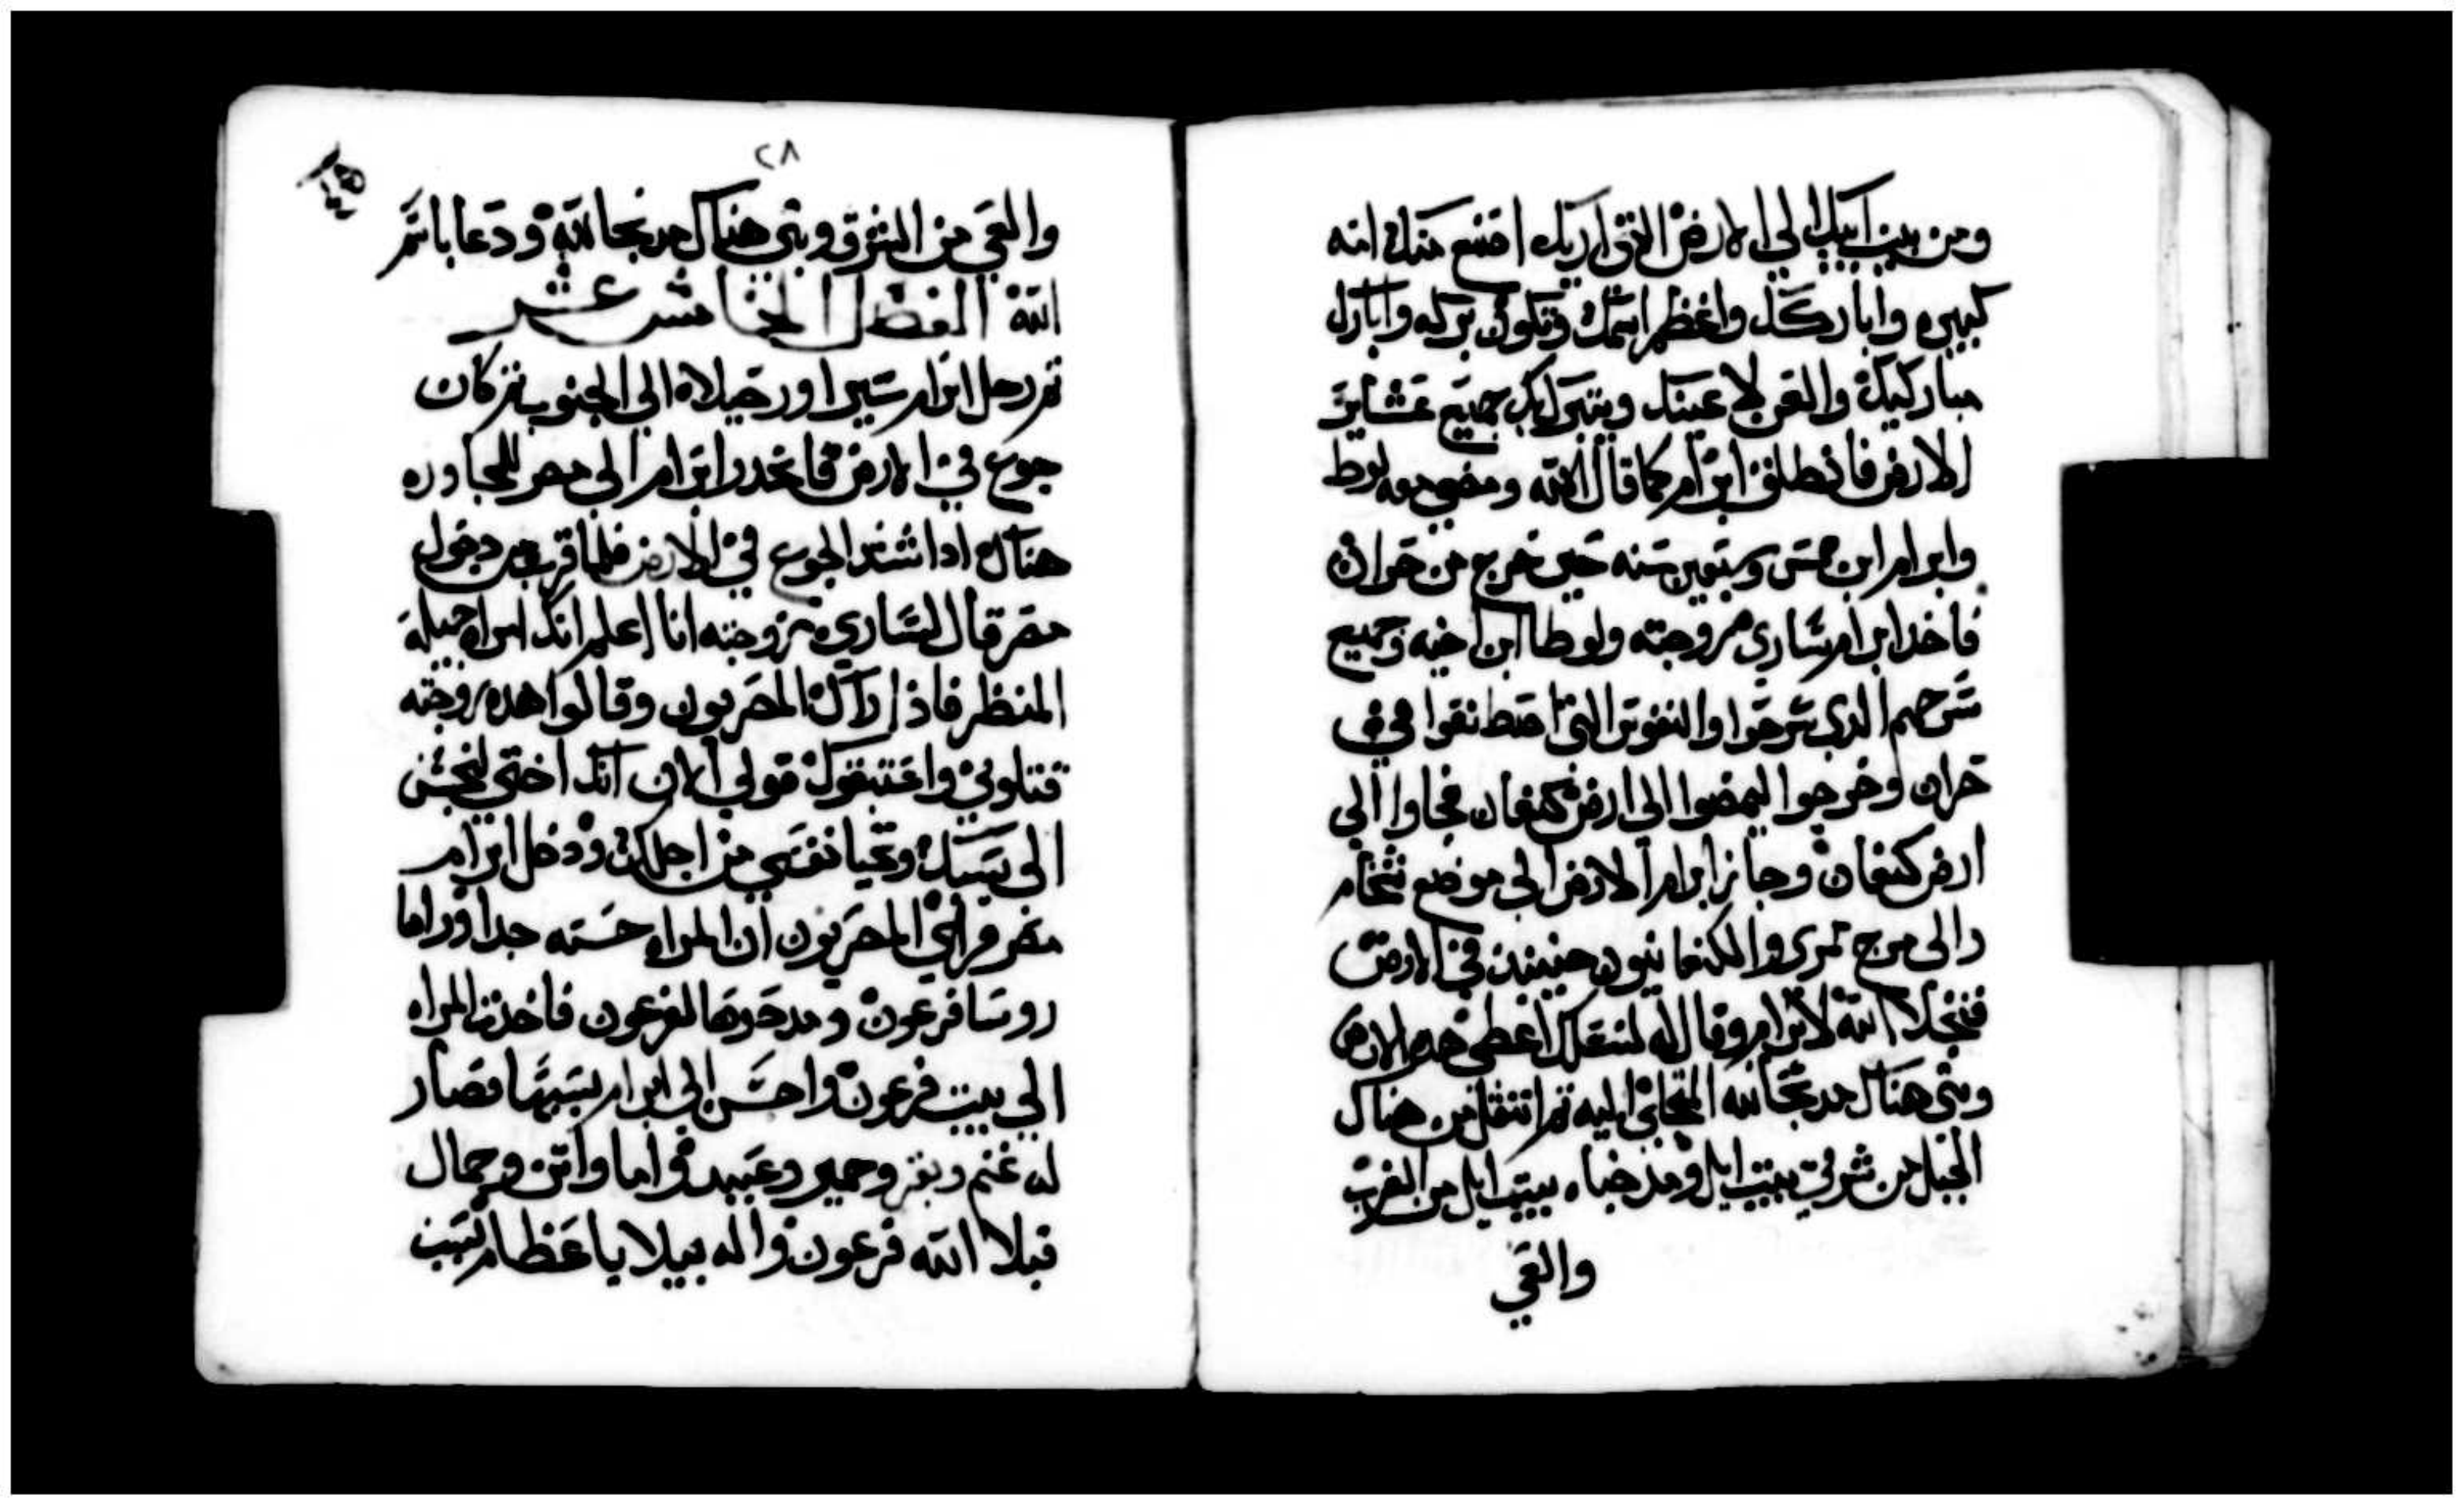 ومن بيت ابيك الي الارض التي اريك اصنع منك امه
كبيره واباركك واعظم اسمك وتكون بركه وابارك
مباركيك والعن لاعينك ويتبرك بك جميع عشاير
الارض فانطلق ابرام كما قال الله ومضي معه لوط
وابرام ابن خمس وسبعين سنه حين خرج من حران
فاخد ابرام ساري زوجته ولوطا ابن اخيه وجميع
سرحهم الدي سرحوا والنفوس التي اصطنعوا في
حران وخرجوا ليمضوا الي ارض كنعان فجاوا الي
ارض كنعان وجاز ابرام الارض الي موضع شخام
والي مرج ممري والكنعانيون حينيد في الارض
فتجلا الله لابرام وقال له لنسلك اعطي هده الارض
وبني هناك مدبحا لله المتجلي اليه تم انتقل من هناك
الجبل من شرقي بيت ايل ومد خباه بيت ايل من الغرب
والعي
٢٨
والعي من الشرق وبني هناك مدبحا لله ودعا باسم
الله الفصل الخامس عشر
تم رحل ابرام سيرا ورحيلا الي الجنوب تم كان
جوع في الارض فانحدر ابرام الي مصر للمجاوره
هناك اد اشتد الجوع في الارض فلما قرب من دخول
مصر قال لساري زوجته انا اعلم انك امراه جميله
المنظر فاذا راك المصريون وقالوا هده زوجته
قتلوني واستبقوك قولي الان انك اختي ليحسن
الي بسببك وتحيا نفسي من اجلك ودخل ابرام
مصر فراي المصريون ان المراه حسنه جدا وراها
روسا فرعون ومدحوها لفرعون فاخدت المراه
الي بيت فرعون واحسن الي ابرام بسببها فصار
له غنم وبقر وحمير وعبيد واما واتن وجمال
فبلا الله فرعون واله ببلايا عظام بسبب